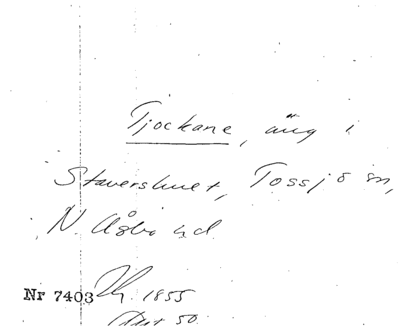 Tjockane, äng i
Stavershult, Tossjö sn,
N. Åsbo hd.
Nr 7403 1855
50